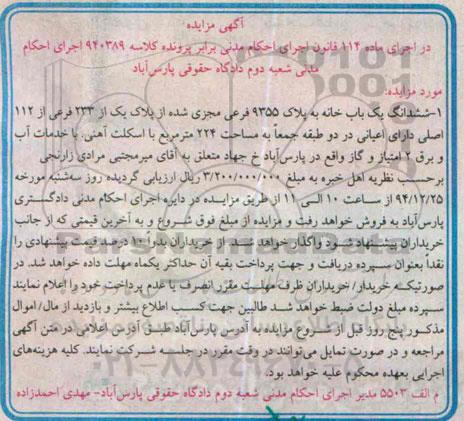 آگهی مزایده
در اجرای ماده ۱۱۴ قانون اجرای احکام مدنی برابر پرونده کلاسه ۹۴۰۳۸۹ اجرای احکام
مدنی شعبه دوم دادگاه حقوقی پارس‌آباد
مورد مزایده:
۱-ششدانگ یک باب خانه به پلاک ۹۳۵۵ فرعی مجزی شده از پلاک یک از ۲۳۳ فرعی از ۱۱۲
اصلی دارای اعیانی در دو طبقه جمعاً به مساحت ۲۲۴ مترمربع با اسکلت آهنی با خدمات آب
و برق ۲ امتیاز و گاز واقع در پارس‌آباد خ جهاد متعلق به آقای میرمجتبی مرادی زارنجی
برحسب نظریه اهل خبره به مبلغ ۳/۲۰۰/۰۰۰/۰۰۰ ریال ارزیابی گردیده روز سه‌شنبه مورخه
۹۴/۱۲/۲۵ از ساعت ۱۰ الی ۱۱ از طریق مزایده در دایره اجرای احکام مدنی دادگستری
پارس‌آباد به فروش خواهد رفت و مزایده از مبلغ فوق شروع و به آخرین قیمتی که از جانب
خریداران پیشنهاد شود واگذار خواهد شد از خریداران بدراً ۱۰ درصد قیمت پیشنهادی را
نقداً بعنوان سپرده دریافت و جهت پرداخت بقیه آن حداکثر یکماه مهلت داده خواهد شد. در
صورتیکه خریدار/ خریداران ظرف مهلت مقرر انصرف یا عدم پرداخت خود را اعلام نمایند
سپرده مبلغ دولت ضبط خواهد شد طالبین جهت کسب اطلاع بیشتر و بازدید از مال/ اموال
مذکور پنج روز قبل از شروع مزایده به آدرس پارس‌آباد طبق آدرس اعلامی در متن آگهی
مراجعه و در صورت تمایل می‌توانند در وقت مقرر در جلسه شرکت نمایند. کلیه هزینه‌های
اجرایی بعهده محکوم علیه خواهد بود.
م الف ۵۵۰۳ مدیر اجرای احکام مدنی شعبه دوم دادگاه حقوقی پارس‌آباد- مهدی احمدزاده